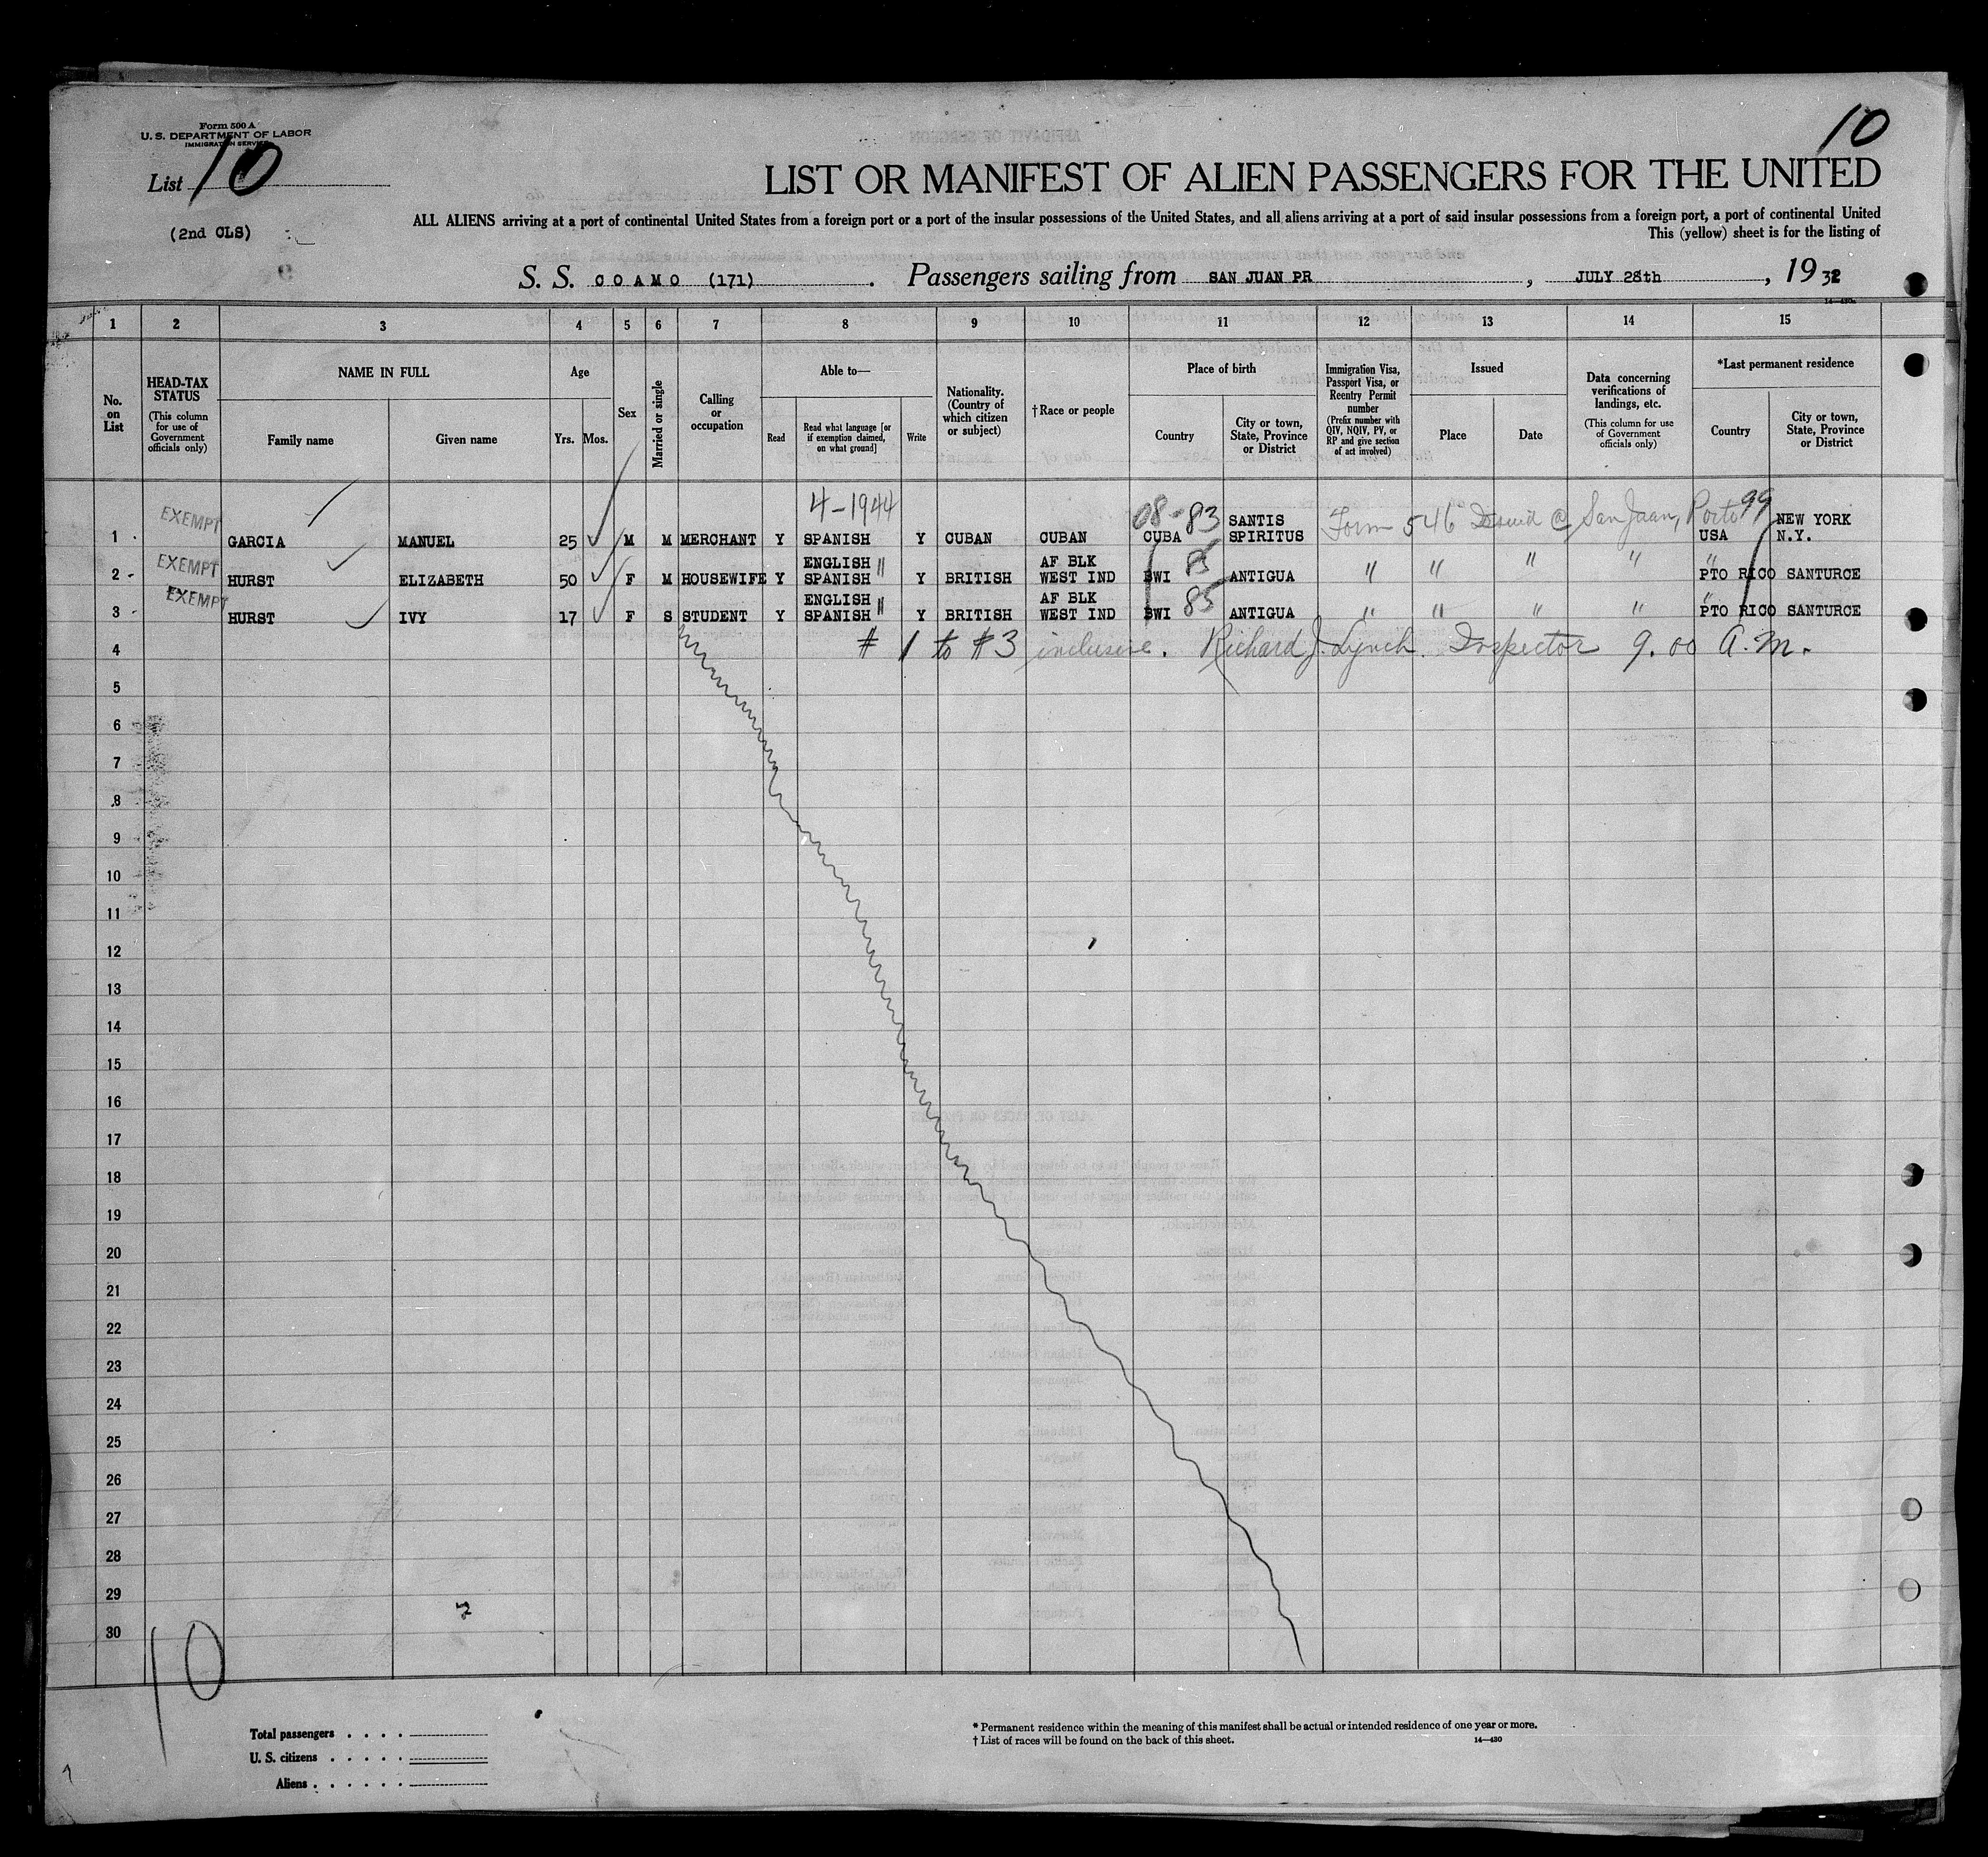 Form 500 A
U. S. DEPARTMENT OF LABOR
IMMIGRATION SERVICE
List 10
(2nd CLS)
10
LIST OR MANIFEST OF ALIEN PASSENGERS FOR THE UNITED
ALL ALIENS arriving at a port of continental United States from a foreign port or a port of the insular possessions of the United States, and all aliens arriving at a port of said insular possessions from a foreign port, a port of continental United
This (yellow) sheet is for the listing of
S. S. COAMO (171). Passengers sailing from SAN JUAN PR, JULY 28th, 1932
1 2 3 4 5 6 7 8 9 10 11 12 13 14 15
No. on List
HEAD-TAX STATUS (This column for use of Government officials only)
NAME IN FULL
Family name
Given name
Age
Yrs. Mos.
Sex
Married or single
Calling or occupation
Able to—
Read
Read what language [or if exemption claimed, on what ground]
Write
Nationality. (Country of which citizen or subject)
†Race or people
Place of birth
Country
City or town, State, Province or District
Immigration Visa, Passport Visa, or Reentry Permit number (Prefix number with QIV, NQIV, PV, or RP and give section of act involved)
Issued
Place
Date
Data concerning verifications of landings, etc. (This column for use of Government officials only)
*Last permanent residence
Country
City or town, State, Province or District
4-1944 08-83 99
1 EXEMPT GARCIA MANUEL 25 M M MERCHANT Y SPANISH Y CUBAN CUBAN CUBA SANTIS SPIRITUS Form 546 Issued @ San Juan, Porto USA NEW YORK N.Y.
2 EXEMPT HURST ELIZABETH 50 F M HOUSEWIFE Y ENGLISH SPANISH " Y BRITISH AF BLK WEST IND BWI 85 ANTIGUA " " " " " PTO RICO SANTURCE
3 EXEMPT HURST IVY 17 F S STUDENT Y ENGLISH SPANISH " Y BRITISH AF BLK WEST IND BWI 85 ANTIGUA " " " " " PTO RICO SANTURCE
4 # 1 to #3 inclusive. Richard J. Lynch. Inspector 9.00 A.M.
5
6
7
8
9
10
11
12
13
14
15
16
17
18
19
20
21
22
23
24
25
26
27
28
29
30
10
Total passengers . . . .
U. S. citizens . . . . .
Aliens . . . . . .
* Permanent residence within the meaning of this manifest shall be actual or intended residence of one year or more.
† List of races will be found on the back of this sheet.
14—430